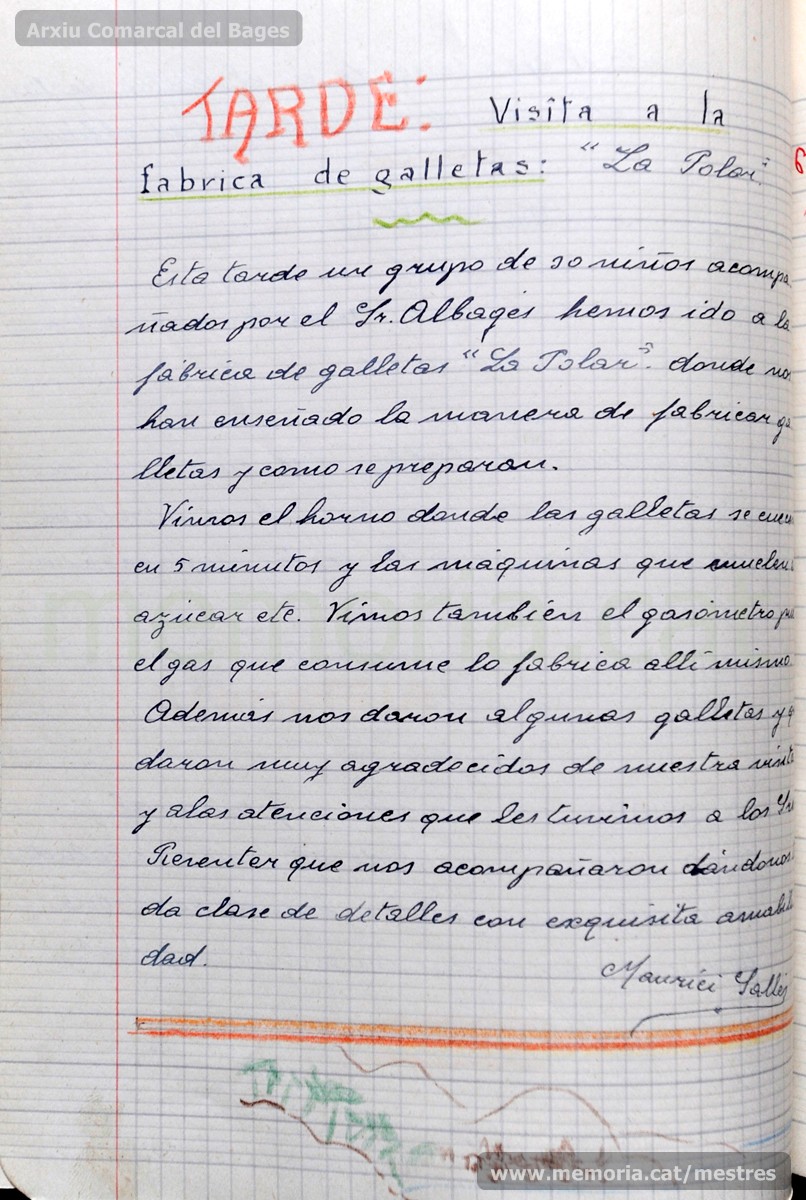 Arxiu Comarcal del Bages
TARDE: Visita a la
fabrica de galletas: "La Polar".
6
Esta tarde un grupo de 30 niños acompa
ñados por el Sr. Albagés hemos ido a la
fábrica de galletas "La Polar". donde nos
han enseñado la manera de fabricar ga
lletas y como se preparan.
Vimos el horno donde las galletas se cuecen
en 5 minutos y las máquinas que muelen
azúcar etc. Vimos también el gasómetro
el gas que consume lo fabrica allí mismo.
Además nos daron algunas galletas y
daron muy agradecidos de nuestra visita
y a las atenciones que les tuvimos a los
que nos acompañaron dándonos
da clase de detalles con exquisita amabili
dad.
Maurici Sallés
www.memoria.cat/mestres